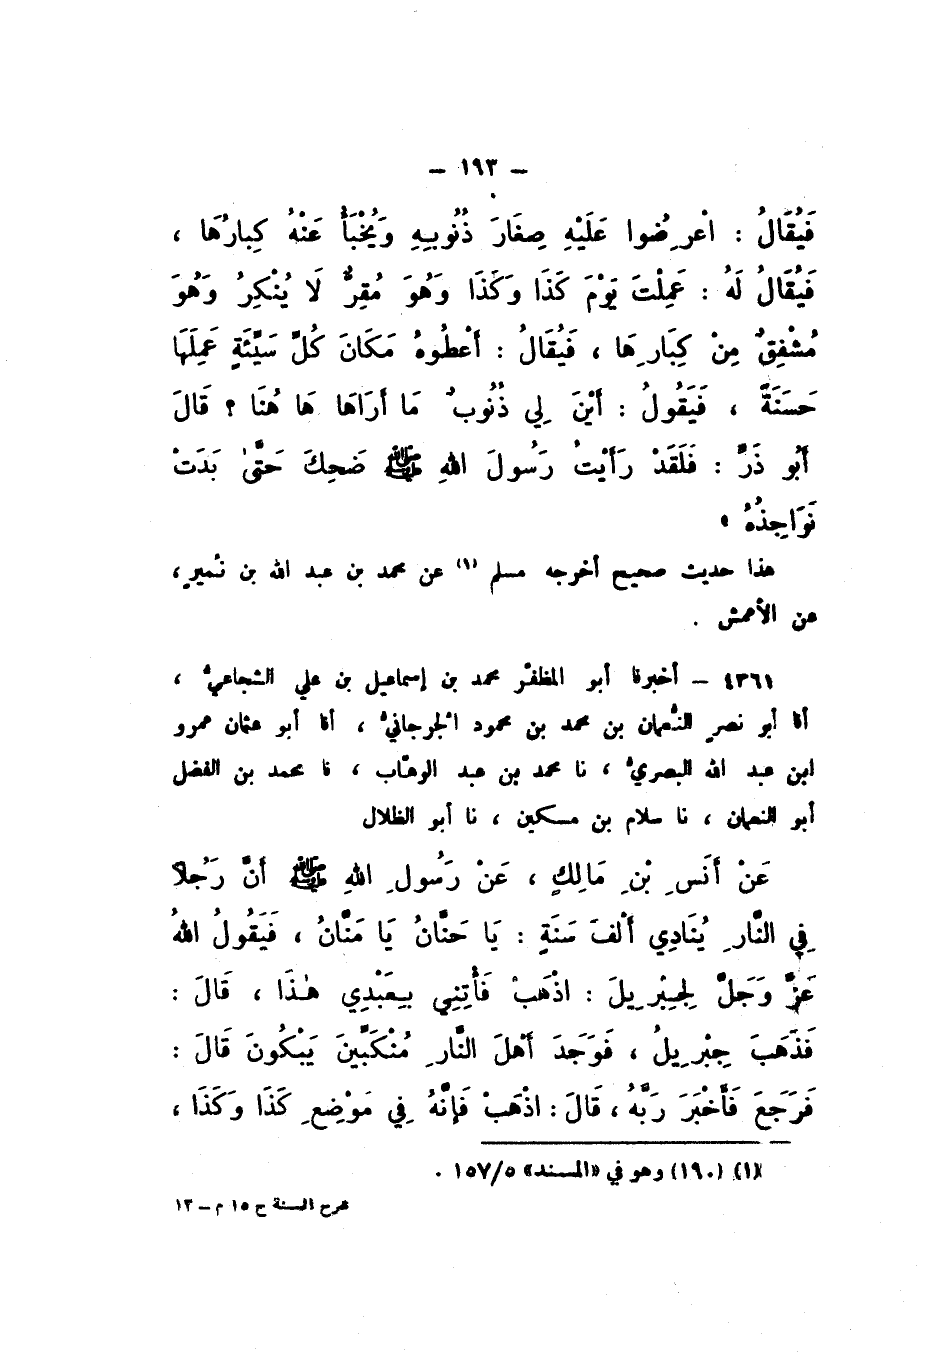 – ١٩٣ –
فَيُقَالُ : اْعرِضُوا عَلَيْهِ صِغَارَ ذُنُوبِهِ وَيُخْبَأُ عَنْهُ كِبارُهَا ،
فَيُقَالُ لَهُ : عَمِلْتَ يَوْمَ كَذَا وَكَذَا وَهُوَ مُقِرٌّ لَا يُنْكِرُ وَهُوَ
مُشْفِقٌ مِنْ كِبَارِهَا ، فَيُقَالُ : أَعْطُوهُ مَكَانَ كُلِّ سَيِّئَةٍ عَمِلَهَا
حَسَنَةً ، فَيَقُولُ : أَيْنَ لِي ذُنُوبٌ مَا أَرَاهَا هَا هُنَا ؟ قَالَ
أَبُو ذَرٍّ : فَلَقَدْ رَأَيْتُ رَسُولَ اللهِ ﷺ ضَحِكَ حَتَّىٰ بَدَتْ
نَوَاجِذُهُ »
هذا حديث صحيح أخرجه مسلم (١) عن محمد بن عبد الله بن نُميرٍ ،
عن الأعمش .
٤٣٦١ – أخبرنا أبو المظفر محمد بن إسماعيل بن علي الشجاعيُّ ،
أنا أبو نصرٍ النُّعمان بن محمد بن محمود الجرجانيُّ ، أنا أبو عثمان عمرو
ابن عبد الله البصريُّ ، نا محمد بن عبد الوهّاب ، نا محمد بن الفضل
أبو النعمان ، نا سلام بن مسكين ، نا أبو الظلال
عَنْ أَنَسِ بْنِ مَالِكٍ ، عَنْ رَسُولِ اللهِ ﷺ أَنَّ رَجُلاً
فِي النَّارِ يُنَادِي أَلْفَ سَنَةٍ : يَا حَنَّانُ يَا مَنَّانُ ، فَيَقُولُ اللهُ
عَزَّ وَجَلَّ لِجِبْرِيلَ : اذْهَبْ فَأْتِنِي بِعَبْدِي هٰذَا ، قَالَ :
فَذَهَبَ جِبْرِيلُ ، فَوَجَدَ أَهْلَ النَّارِ مُنْكَبِّينَ يَبْكُونَ قَالَ :
فَرَجَعَ فَأَخْبَرَ رَبَّهُ ، قَالَ : اذْهَبْ فَإِنَّهُ فِي مَوْضِعِ كَذَا وَكَذَا ،
(١) (١٩٠) وهو في «المسند» ١٥٧/٥ .
شرح السنة ج ١٥ م – ١٣